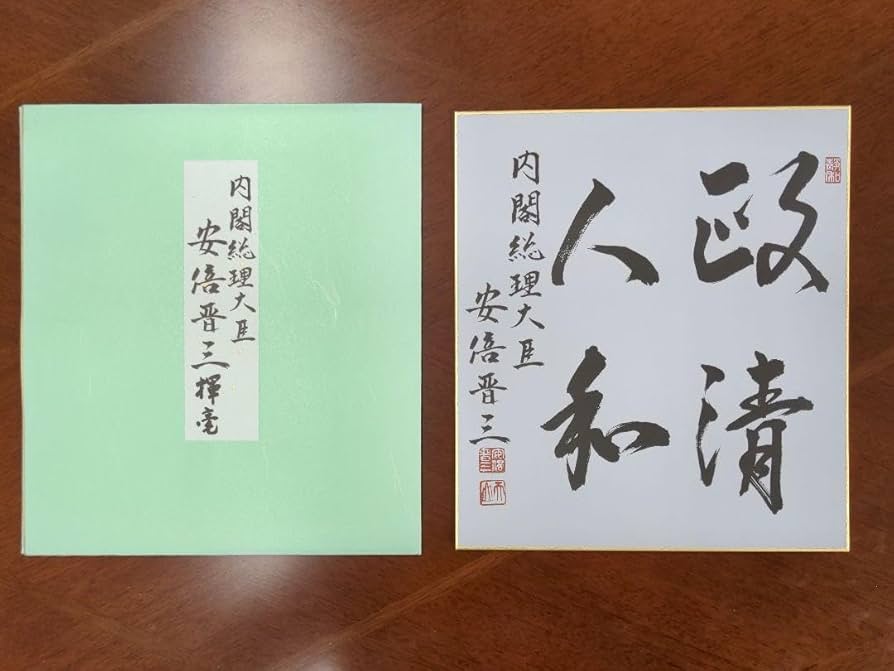 内閣総理大臣
安倍晋三揮毫
政清
人和
内閣総理大臣
安倍晋三